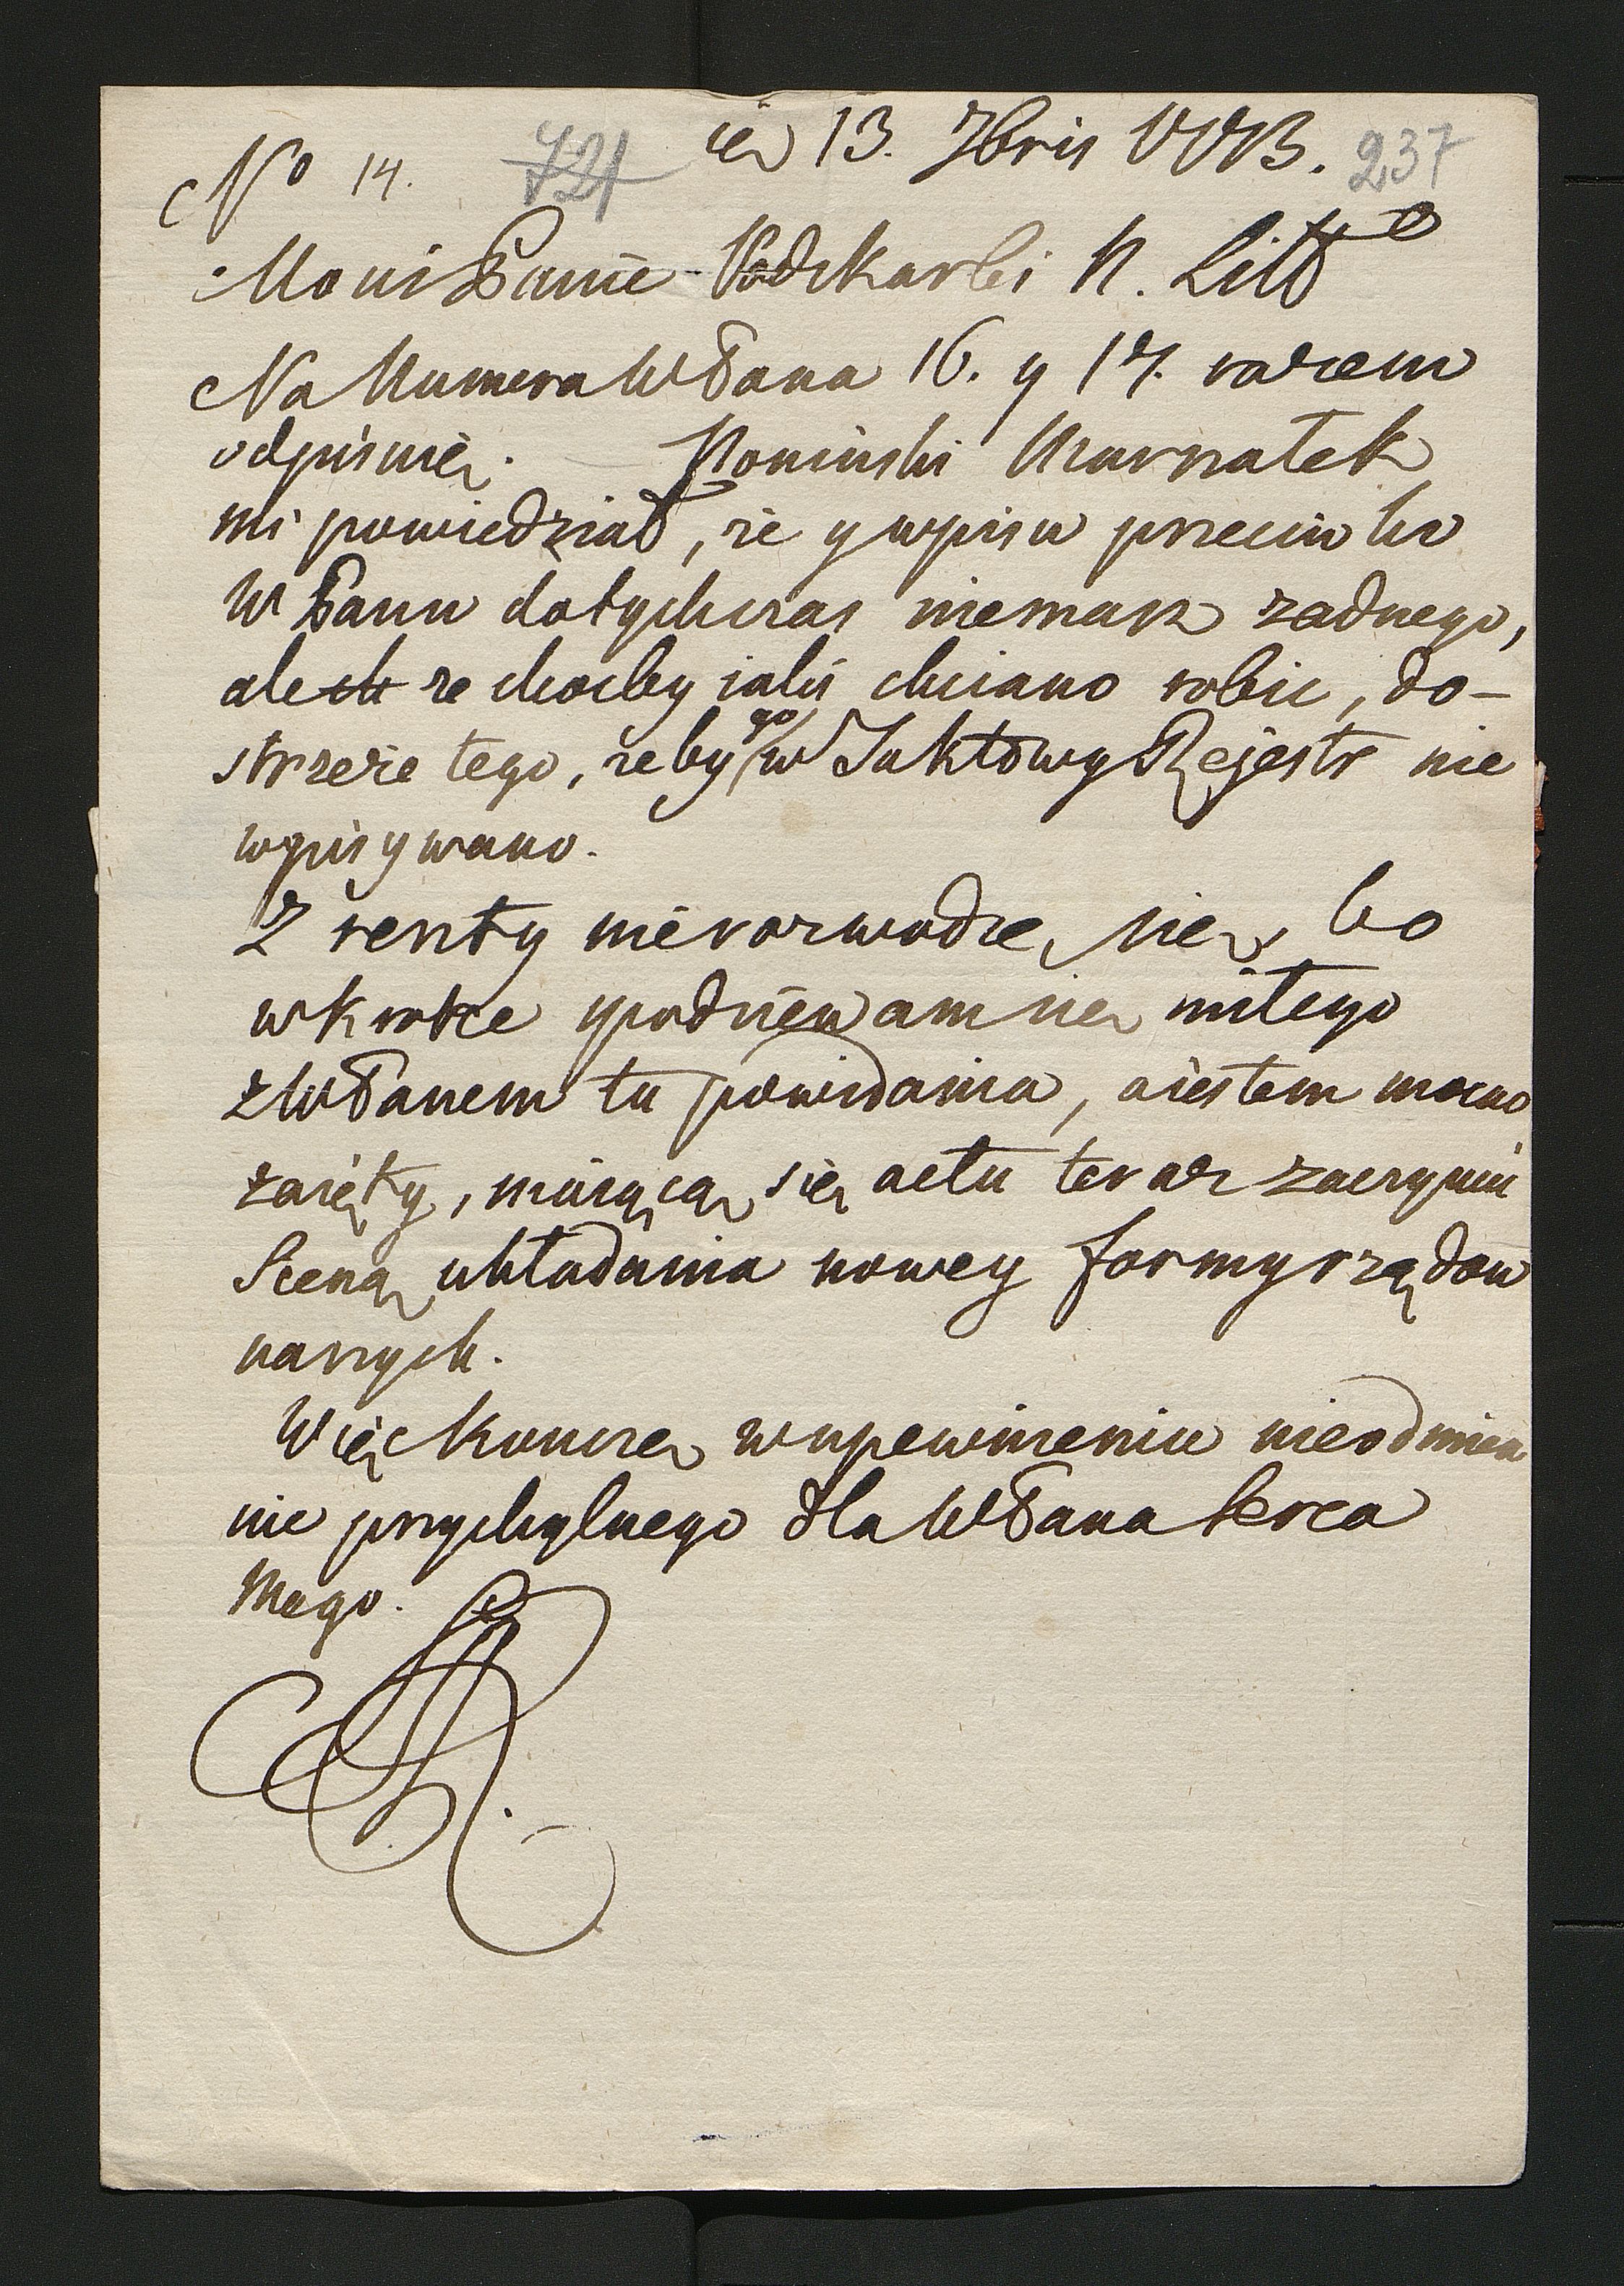 No 14. 721 ier 13. 7bris VVB. 237
Mości Panie Podskarbi N. Litt
Na Numera WPana 16. y 17. razem
odpisuię. Poninski Marszałek
mi powiedział, że y wpisu przeciwko
WPanu dotychczas niemasz żadnego,
ale ch że choćby iakiś chciano robić, do-
strzeże tego, żeby go w Taktowy Rejestr nie
wpisywano.
Z reszty nierozwodzę się, bo
wkrotce spodziewam się miłego
z WPanem tu powidania, aiestem mocno
zaięty, maiącą się actu teraz zacząć
Sceną układania nowey formy rządow
naszych.
Więc kończę w upewnieniu nieodmien
nie przychylnego dla WPana serca
Mego.
SAR.